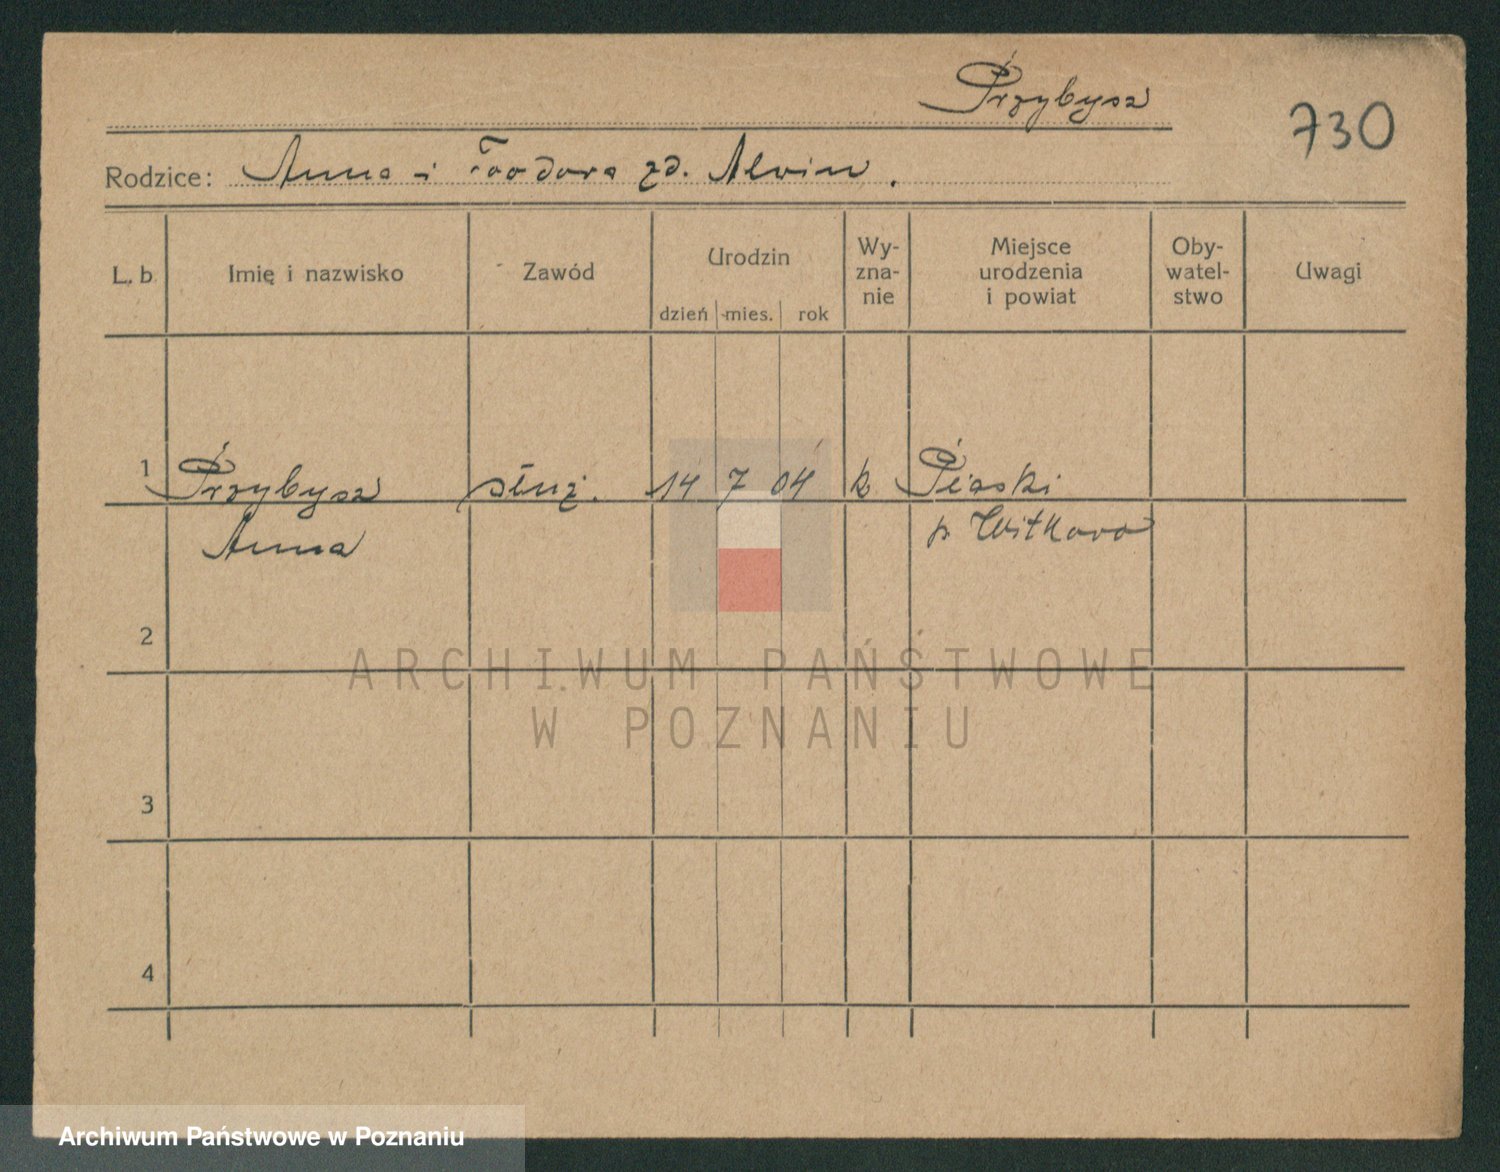 Przybysz
730
Rodzice: Anna i Teodora zd. Alwin.
L. b. Imię i nazwisko Zawód Urodzin dzień mies. rok Wy-zna-nie Miejsce urodzenia i powiat Oby-watel-stwo Uwagi
1 Przybysz służ. 14 7 04 k Piaski
Anna p. Witkowo
2
ARCHIWUM PAŃSTWOWE
W POZNANIU
3
4
Archiwum Państwowe w Poznaniu